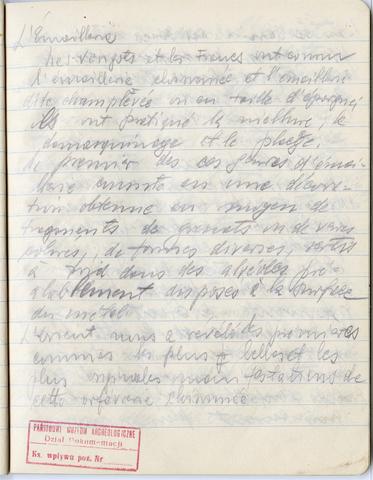 L'Émaillerie
Les Vizigots et les Francs ont connu
l'émaillerie cloisonnée et l'émaillerie
dite champlevée ou en taille d'épargne.
Ils ont pratiqué la niellure, le
damasquinage et le placage.
Le premier des ces genres d'émail-
lerie consiste en une décora-
tion obtenue au moyen de
fragments de grenats ou de verres
colorés, de formes diverses, sertis
à froid dans des alvéoles pré-
alablement disposés à la surface
du métal.
L'orient nous a révélé des premières
comme les plus belles et les
plus originales manifestations de
cette orfèvrerie cloisonnée
PAŃSTWOWE MUZEUM ARCHEOLOGICZNE
Dział Dokumentacji
Ks. wpływu poz. Nr